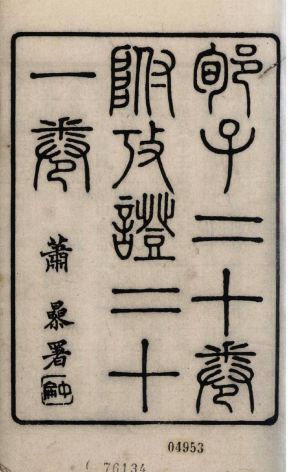 郇子二十卷
附攷證二十
一卷
蕭署
04953
76134